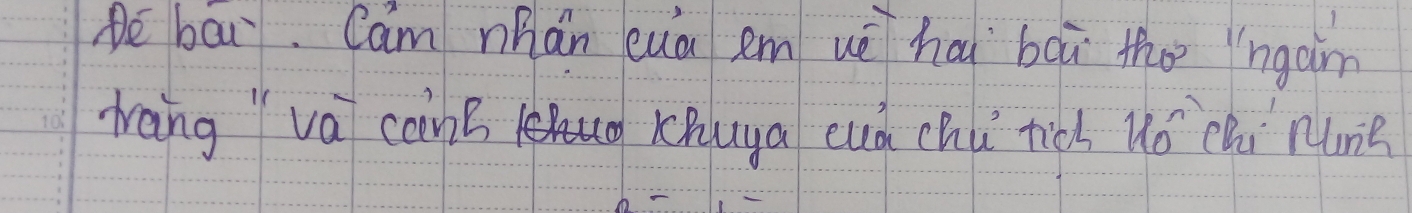 Đề bài. Cảm nhận của em về hai bài thơ "ngắm
trăng" và cảnh khuya của chủ tịch Hồ Chí Minh